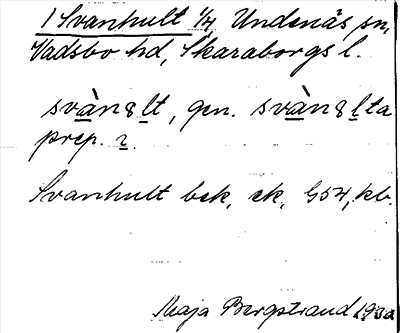 1 Svanhult 1/4 Undenäs sn,
Vadsbo hd, Skaraborgs l.
svàn8lt, gen. svàn8lta
prep. i.
Svanhult bsk, ek, G54, kb.
Maja Bergstrand 1932